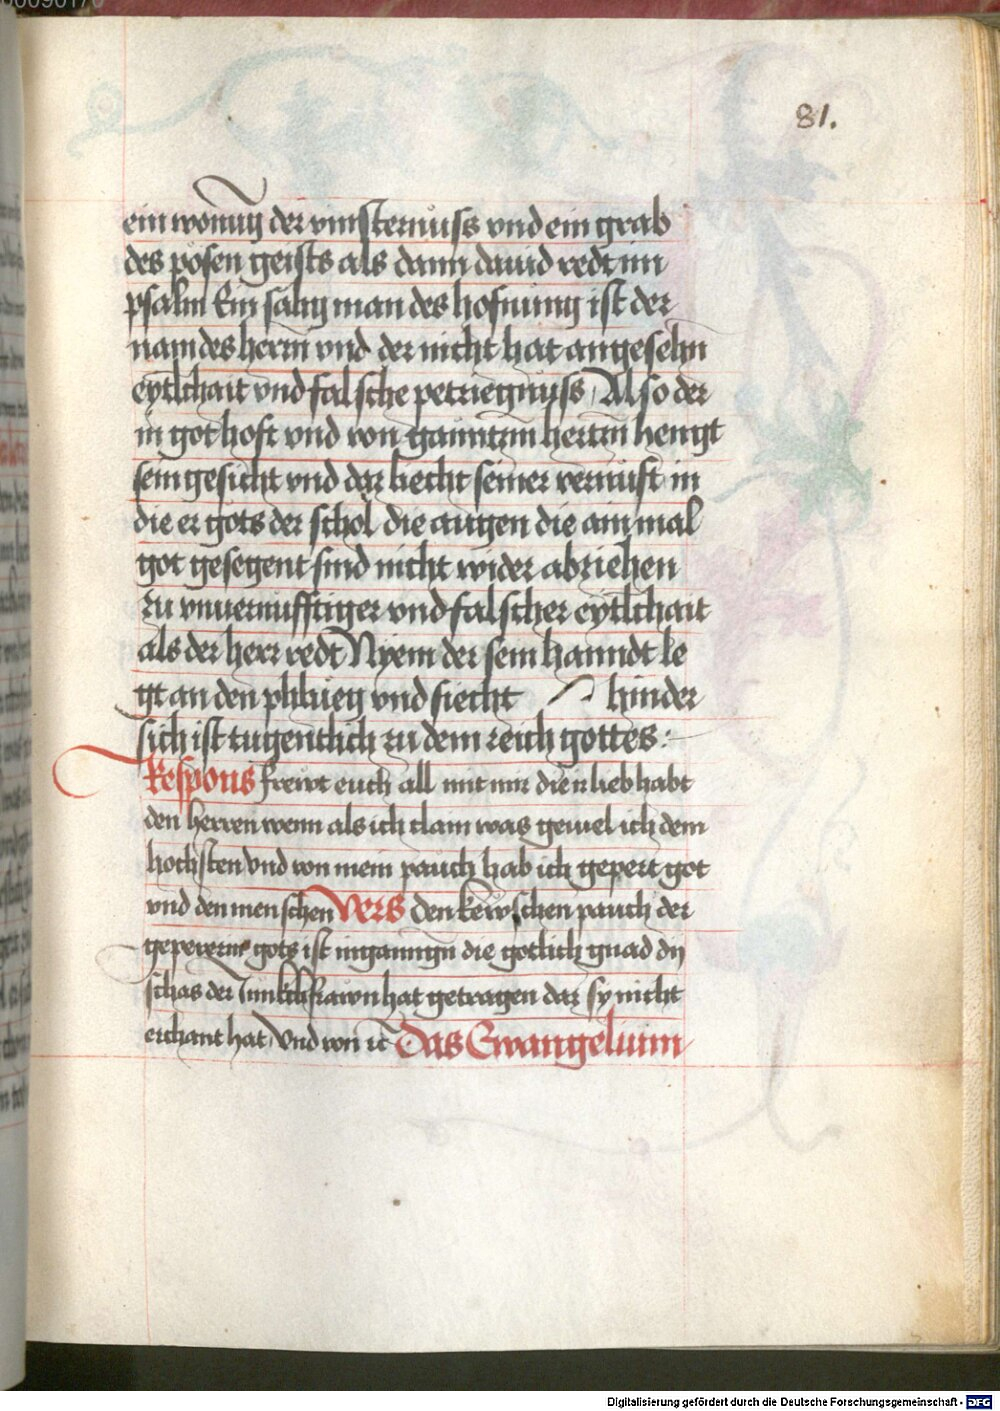 81.
ein wonung der vinsternůss vnd ein grab
des pősen geists als dann dauid redt im
psalm Ein sälig man des hofnung ist der
nam des herrn vnd der nicht hat angesehn
eytlchait vnd falsche petriegnuss Also der
in got hoft vnd von ganntzm hertzn hengt
sein gesicht vnd daz liecht seiner vernuft in
die er gots der schol die augen die ain mal
got gesegent sind nicht wider abziehen
zu vnuernufftiger vnd falscher eytlchait
als der herr redt Nyem der sein hanndt le
gt an den phlueg vnd siecht hinder
sich ist tugentlich zu dem reich gottes :
Respons frewt euch all mit mir die lieb habt
den herren wenn als ich clain was geuiel ich dem
hochsten vnd von meim pauch hab ich gepert got
vnd den menschen Vers den kewschen pauch der
gepererin gots ist inganngn die gotlich gnad diʒ
schas der Junkchfrawn hat getragen daz sy nicht
erchant hat Vnd von ic Das Ewangelium
Digitalisierung gefördert durch die Deutsche Forschungsgemeinschaft - DFG